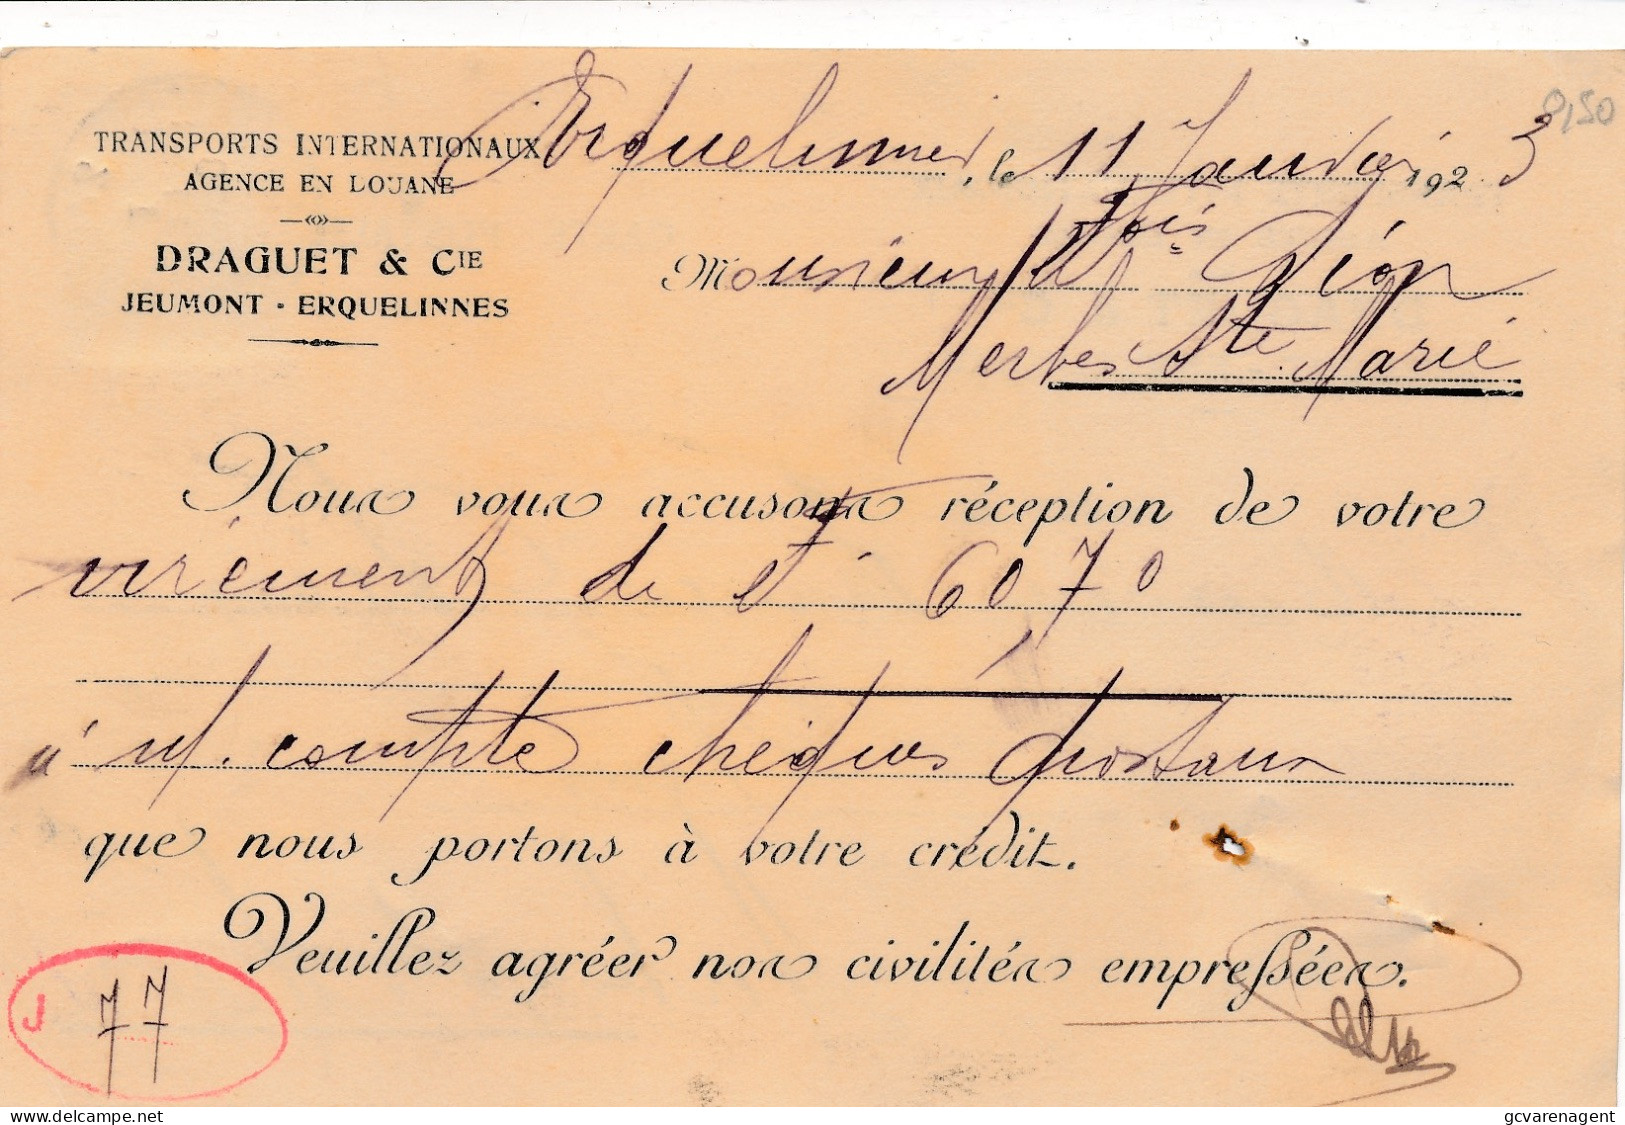 8,50
TRANSPORTS INTERNATIONAUX
AGENCE EN DOUANE
DRAGUET & CIE
JEUMONT - ERQUELINNES
Erquelinnes, le 11 Janvier 1923
Monsieur Léon
Merbes Ste. Marie
Nous vous accusons réception de votre
virement de 6070
à m. compte chèques postaux
que nous portons à votre crédit.
Veuillez agréer nos civilités empressées.
J 77
gcvarenagent
delcampe.net